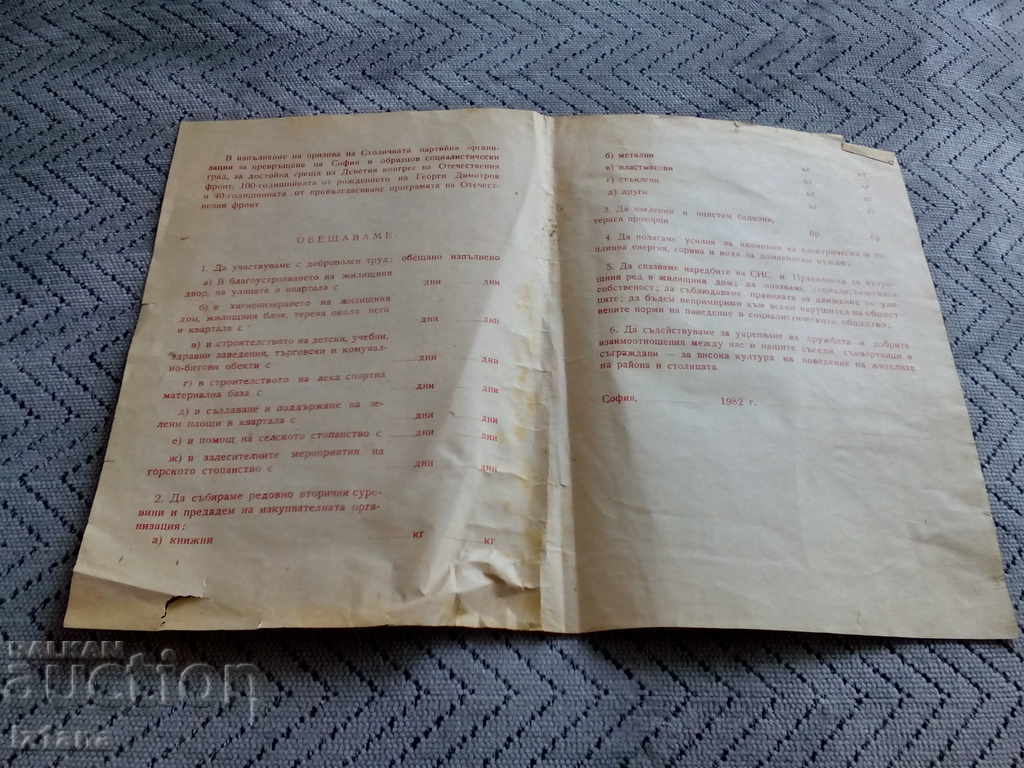 В изпълнение на призива на Столичната партийна органи-
зация за превръщане на София в образцов социалистически
град, за достойна среща на Деветия конгрес на Отечествения
фронт, 100-годишнината от рождението на Георги Димитров
и 40-годишнината от провъзгласяване програмата на Отечест-
вения фронт
ОБЕЩАВАМЕ
1. Да участвуваме с доброволен труд: обещано изпълнено
а) В благоустрояването на жилищния
двор, на улицата и квартала с дни дни
б) в хигиенизирането на жилищния
дом, жилищния блок, терена около него
и квартала с дни дни
в) в строителството на детски, учебни,
здравни заведения, търговски и комунал-
но-битови обекти с дни дни
г) в строителството на лека спортна
материална база с дни дни
д) в създаване и поддържане на зе-
лени площи в квартала с дни дни
е) в помощ на селското стопанство с дни дни
ж) в залесителните мероприятия на
горското стопанство с дни дни
2. Да събираме редовно вторични суро-
вини и предадем на изкупвателната орга-
низация;
а) книжни кг кг
б) метални
в) пластмасови кг кг
г) стъклени кг кг
д) други кг кг
3. Да озеленим и цветим балкони,
тераси прозорци бр. бр.
4. Да полагаме усилия за икономия на електрическа и то-
плинна енергия, горива и вода за домакински нужди;
5. Да спазваме наредбите на СНС и Правилника за вътреш-
ния ред в жилищния дом; да опазваме социалистическата
собственост; да съблюдаваме правилата за движение по ули-
ците; да бъдем непримирими към всеки нарушител на общест-
вените норми на поведение в социалистическото общество;
6. Да съдействуваме за укрепване на дружбата и добрите
взаимоотношения между нас и нашите съседи, съквартирци и
съграждани — за висока култура на поведение на жителите
на района и столицата.
София, 1982 г.
BALKAN
auction
Iziana